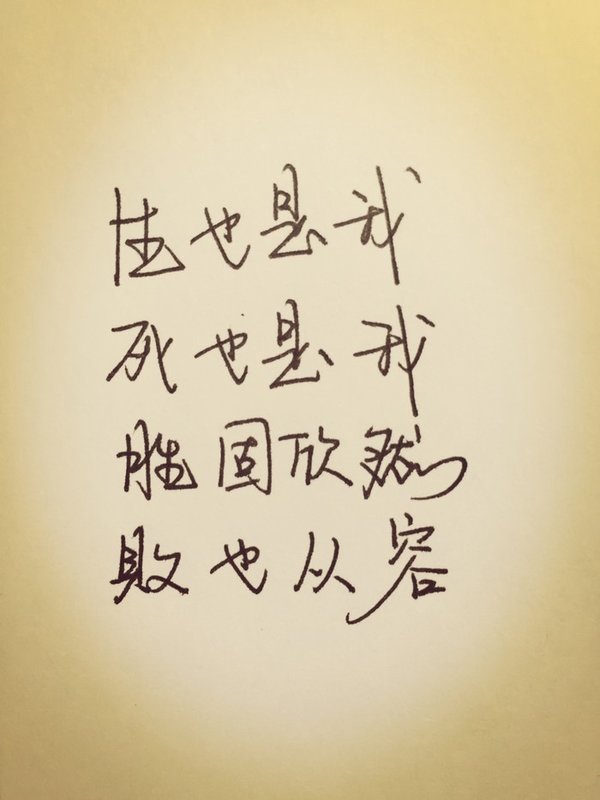 生也是我
死也是我
胜固欣然
败也从容